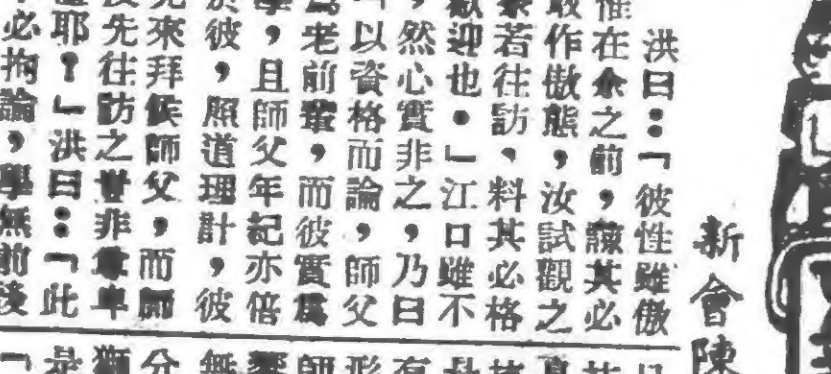 新會陳
洪曰：「彼性雖傲
惟在余之前，諒其必
敢作傲態，汝試觀之
若往訪，料其必格
歡迎也。」江口雖不
，然心實非之，乃曰
「以資格而論，師父
爲老前輩，而彼實爲
學，且師父年紀亦倍
於彼，照道理計，彼
先來拜候師父，而師
先往訪之豈非尊卑
耶？」洪曰：「此
必拘論，學無前後
有
形
師
無
分
獅
是
「